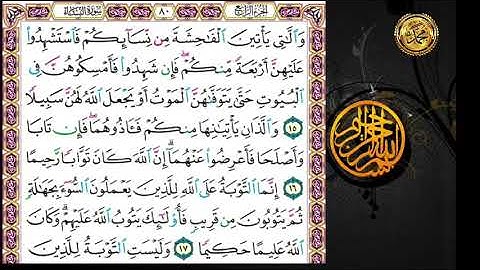 الجزء الرابع ٨٠ سورة النساء
وَٱلَّٰتِي يَأۡتِينَ ٱلۡفَٰحِشَةَ مِن نِّسَآئِكُمۡ فَٱسۡتَشۡهِدُواْ
عَلَيۡهِنَّ أَرۡبَعَةٗ مِّنكُمۡۖ فَإِن شَهِدُواْ فَأَمۡسِكُوهُنَّ فِي
ٱلۡبُيُوتِ حَتَّىٰ يَتَوَفَّىٰهُنَّ ٱلۡمَوۡتُ أَوۡ يَجۡعَلَ ٱللَّهُ لَهُنَّ سَبِيلٗا
١٥ وَٱلَّذَانِ يَأۡتِيَٰنِهَا مِنكُمۡ فَـَٔاذُوهُمَاۖ فَإِن تَابَا
وَأَصۡلَحَا فَأَعۡرِضُواْ عَنۡهُمَآۗ إِنَّ ٱللَّهَ كَانَ تَوَّابٗا رَّحِيمًا
١٦ إِنَّمَا ٱلتَّوۡبَةُ عَلَى ٱللَّهِ لِلَّذِينَ يَعۡمَلُونَ ٱلسُّوٓءَ بِجَهَٰلَةٖ
ثُمَّ يَتُوبُونَ مِن قَرِيبٖ فَأُوْلَٰٓئِكَ يَتُوبُ ٱللَّهُ عَلَيۡهِمۡۗ وَكَانَ
ٱللَّهُ عَلِيمًا حَكِيمٗا ١٧ وَلَيۡسَتِ ٱلتَّوۡبَةُ لِلَّذِينَ